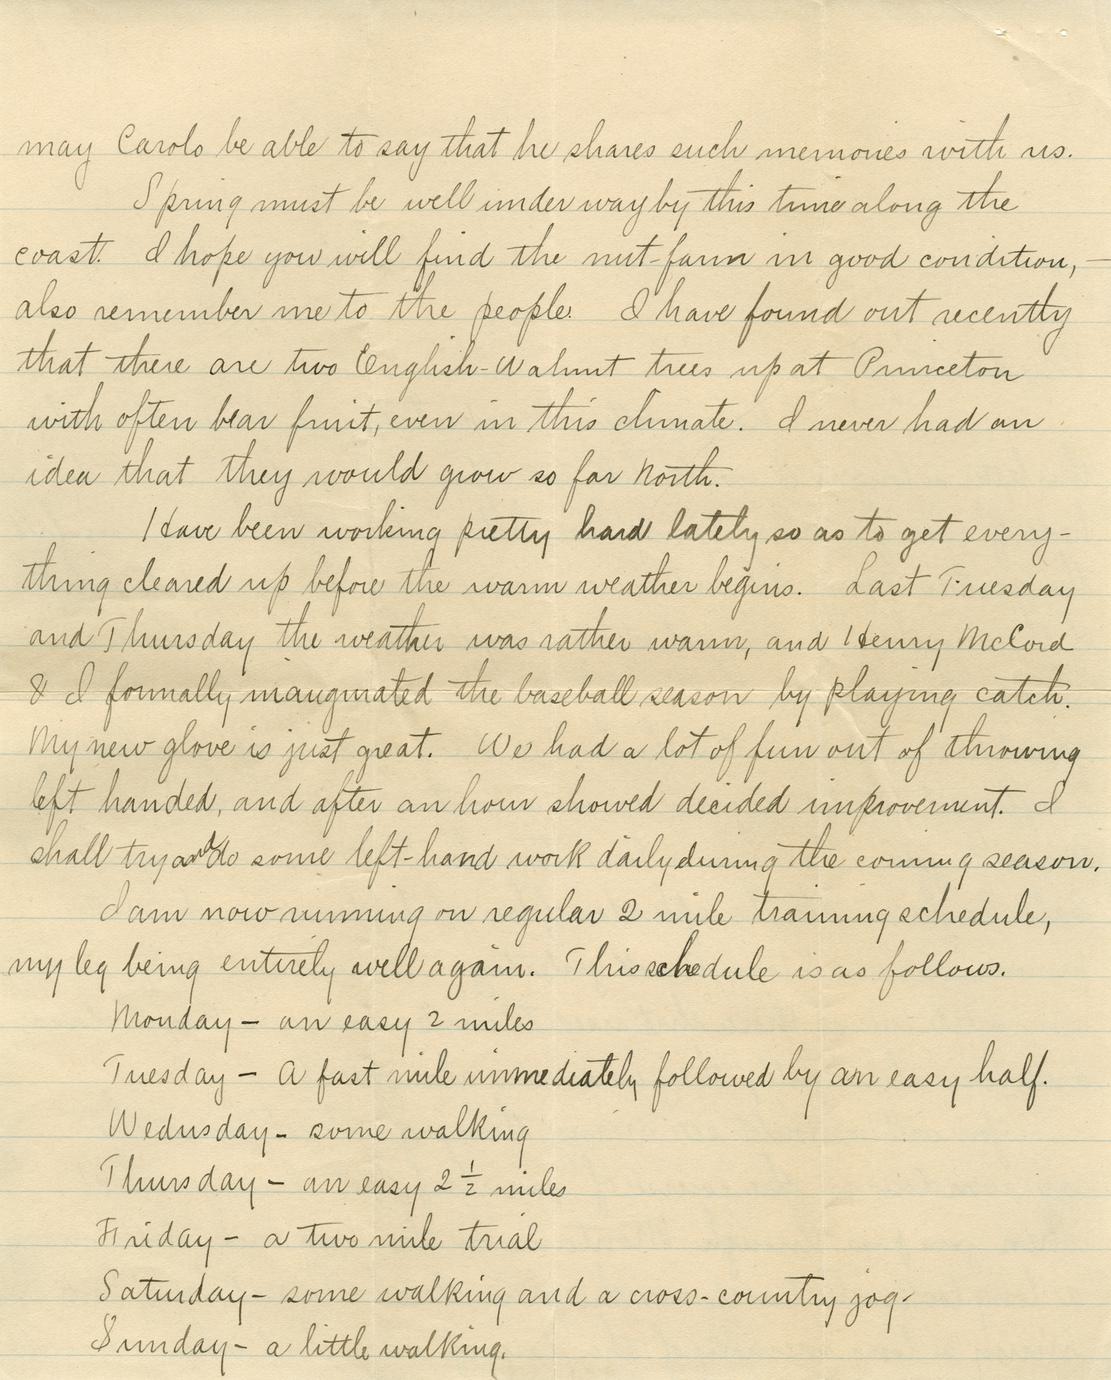 may Carolo be able to say that he shares such memories with us.
Spring must be well under way by this time along the
coast. I hope you will find the nut-farm in good condition, —
also remember me to the people. I have found out recently
that there are two English-Walnut trees up at Princeton
with often bear fruit, even in this climate. I never had an
idea that they would grow so far North.
Have been working pretty hard lately so as to get every-
thing cleared up before the warm weather begins. Last Tuesday
and Thursday the weather was rather warm, and Henry McCord
& I formally inaugurated the baseball season by playing catch.
My new glove is just great. We had a lot of fun out of throwing
left handed, and after an hour showed decided improvement. I
shall try and do some left-hand work daily during the coming season.
I am now running on regular 2 mile training schedule,
my leg being entirely well again. This schedule is as follows.
Monday — an easy 2 miles
Tuesday — A fast mile immediately followed by an easy half.
Wedusday — some walking
Thursday — an easy 2 1/2 miles
Friday — a two mile trial
Saturday — some walking and a cross-country jog-
Sunday — a little walking.